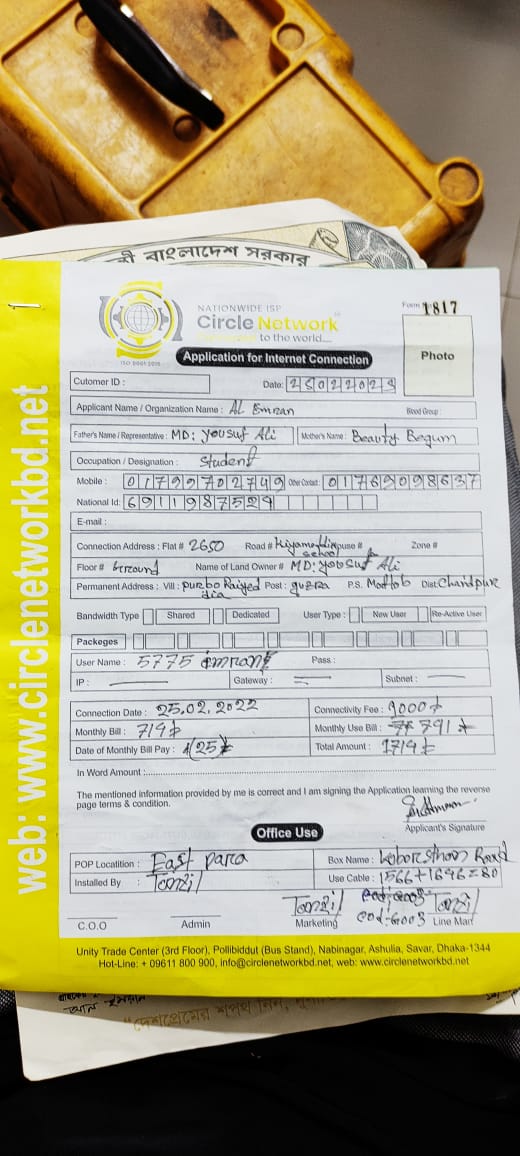 বাংলাদেশ সরকার
NATIONWIDE ISP
Circle Network
to the world....
ISO 9001:2015
Form 1817
Application for Internet Connection
Photo
Cutomer ID :
Date: 25022022
Applicant Name / Organization Name : AL Emran Blood Group :
Father's Name / Representative : MD: yousuf Ali Mother's Name : Beauty Begum
Occupation / Designation : Student
Mobile : 01799702749 Other Contact : 01769098637
National Id: 6911987529
E-mail :
Connection Address : Flat # 2650 Road # school House # Zone #
Floor # Name of Land Owner # MD: yousuf Ali
Permanent Address : Vill : purbo Post : P.S. Dist:
Bandwidth Type Shared Dedicated User Type : New User Re-Active User
Packeges
User Name : 5775 Pass :
IP : Gateway : Subnet :
Connection Date : 25.02.2022 Connectivity Fee :
Monthly Bill : Monthly Use Bill :
Date of Monthly Bill Pay : (25) Total Amount :
In Word Amount :
The mentioned information provided by me is correct and I am signing the Application learning the reverse
page terms & condition.
Applicant's Signature
Office Use
POP Locatition : East para Box Name : Road
Installed By : Tanzil Use Cable : 1566+1646=80
Tanzil Tanzil
C.O.O Admin Marketing Line Man
Unity Trade Center (3rd Floor), Pollibiddut (Bus Stand), Nabinagar, Ashulia, Savar, Dhaka-1344
Hot-Line: + 09611 800 900, info@circlenetworkbd.net, web: www.circlenetworkbd.net
web: www.circlenetworkbd.net